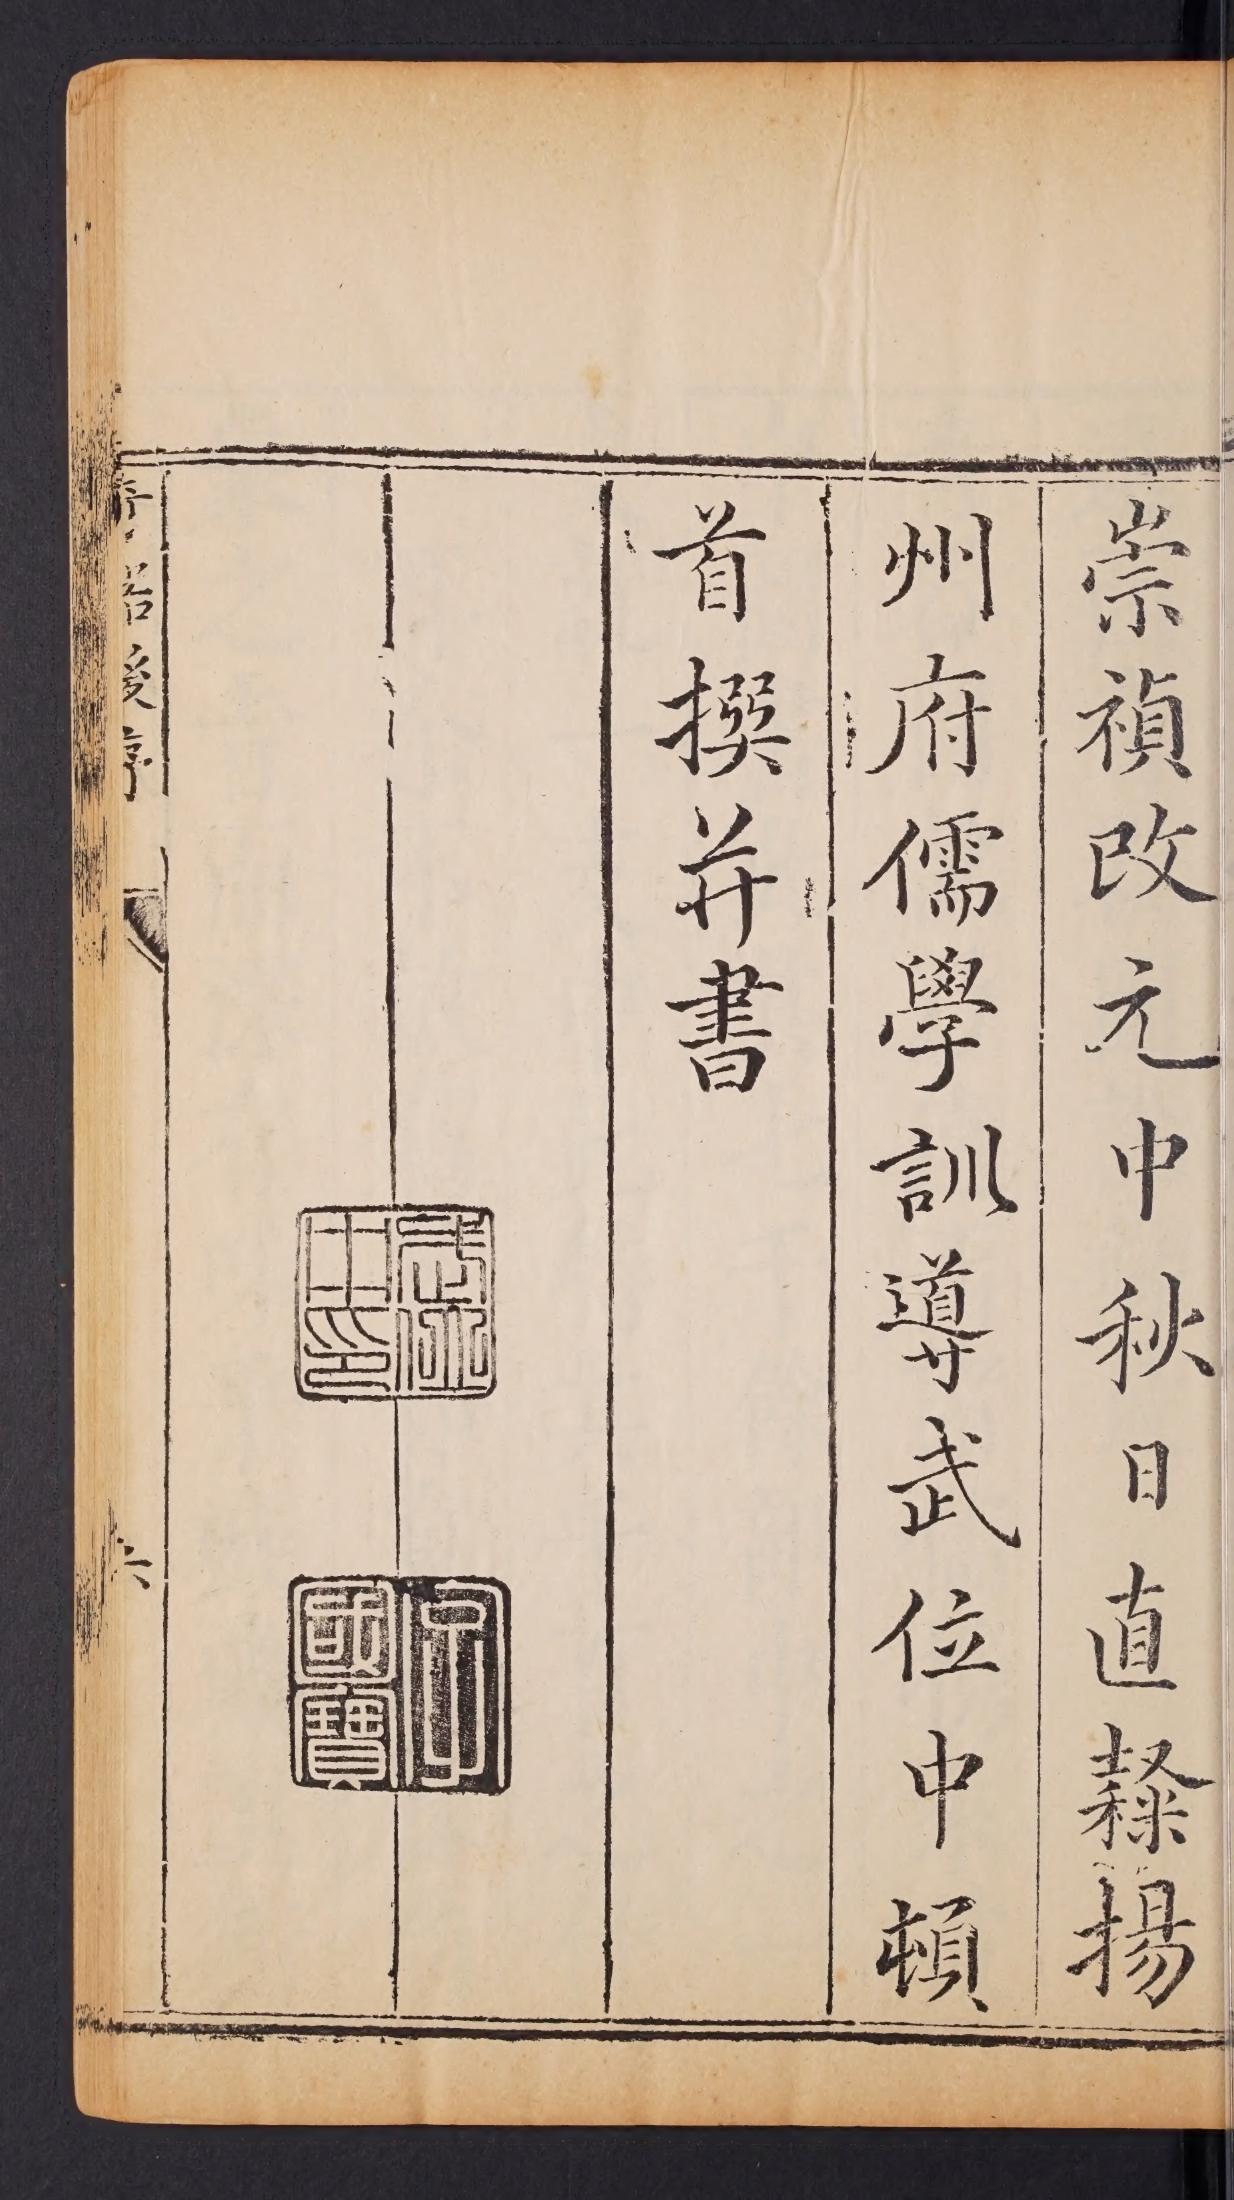 崇禎改元中秋日直隸揚
州府儒學訓導武位中頓
首撰并書
武位
中印
國寶
序
六